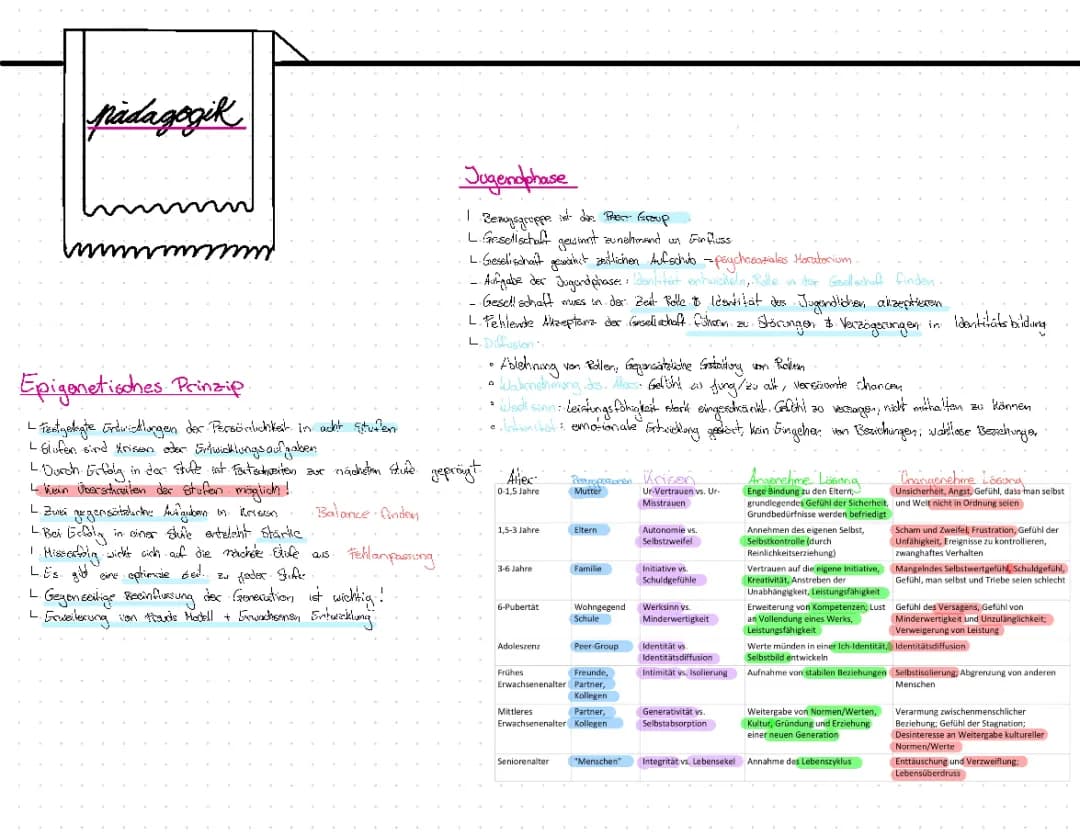 pädagogik
Jugendphase
Bezugsgruppe ist die Peer Group
Gesellschaft gewinnt zunehmend an Einfluss
Gesellschaft gewährt zeitlichen Aufschub → psychosoziales Moratorium
- Aufgabe der Jugendphase: Identität entwickeln, Rolle in der Gesellschaft finden
- Gesellschaft muss in der Zeit Rolle & Identität des Jugendlichen akzeptieren
Fehlende Akzeptanz der Gesellschaft führen zu Störungen & Verzögerungen in Identitätsbildung
Diffusion:
• Ablehnung von Rollen, Gegensätzliche Gestaltung von Rollen
• Wahrnehmung des Alters: Gefühl zu jung/zu alt, versäumte Chancen
• Werksinn: Leistungsfähigkeit stark eingeschränkt, Gefühl zu versagen, nicht mithalten zu können
• Intimität: emotionale Entwicklung gestört, kein Eingehen von Beziehungen, wahllose Beziehungen
Epigenetisches Prinzip
Festgelegte Entwicklungen der Persönlichkeit in acht Stufen
Stufen sind Krisen oder Entwicklungsaufgaben
Durch Erfolg in der Stufe ist Fortschreiten zur nächsten Stufe geprägt
Kein Überschreiten der Stufen möglich!
Zwei gegensätzliche Aufgaben in Krisen Balance finden
Bei Erfolg in einer Stufe entsteht Stärke
Misserfolg wirkt sich auf die nächste Stufe aus Fehlanpassung
Es gibt eine optimale Zeit zu jeder Stufe
Gegenseitige Beeinflussung der Generation ist wichtig!
Erweiterung von Freuds Modell + Erwachsenen Entwicklung
Alter Bezugspersonen Krisen Angenehme Lösung Unangenehme Lösung
0-1,5 Jahre Mutter Ur-Vertrauen vs. Ur- Enge Bindung zu den Eltern; Unsicherheit, Angst, Gefühl, dass man selbst
Misstrauen grundlegendes Gefühl der Sicherheit, und Welt nicht in Ordnung seien
Grundbedürfnisse werden befriedigt
1,5-3 Jahre Eltern Autonomie vs. Annehmen des eigenen Selbst, Scham und Zweifel, Frustration, Gefühl der
Selbstzweifel Selbstkontrolle (durch Unfähigkeit, Ereignisse zu kontrollieren,
Reinlichkeitserziehung) zwanghaftes Verhalten
3-6 Jahre Familie Initiative vs. Vertrauen auf die eigene Initiative, Mangelndes Selbstwertgefühl, Schuldgefühl,
Schuldgefühle Kreativität, Anstreben der Gefühl, man selbst und Triebe seien schlecht
Unabhängigkeit, Leistungsfähigkeit
6-Pubertät Wohngegend Werksinn vs. Erweiterung von Kompetenzen; Lust Gefühl des Versagens, Gefühl von
Schule Minderwertigkeit an Vollendung eines Werks, Minderwertigkeit und Unzulänglichkeit;
Leistungsfähigkeit Verweigerung von Leistung
Adoleszenz Peer-Group Identität vs. Werte münden in einer Ich-Identität, Identitätsdiffusion
Identitätsdiffusion Selbstbild entwickeln
Frühes Freunde, Intimität vs. Isolierung Aufnahme von stabilen Beziehungen Selbstisolierung; Abgrenzung von anderen
Erwachsenenalter Partner, Menschen
Kollegen
Mittleres Partner, Generativität vs. Weitergabe von Normen/Werten, Verarmung zwischenmenschlicher
Erwachsenenalter Kollegen Selbstabsorption Kultur, Gründung und Erziehung Beziehung; Gefühl der Stagnation;
einer neuen Generation Desinteresse an Weitergabe kultureller
Normen/Werte
Seniorenalter "Menschen" Integrität vs. Lebensekel Annahme des Lebenszyklus Enttäuschung und Verzweiflung;
Lebensüberdruss